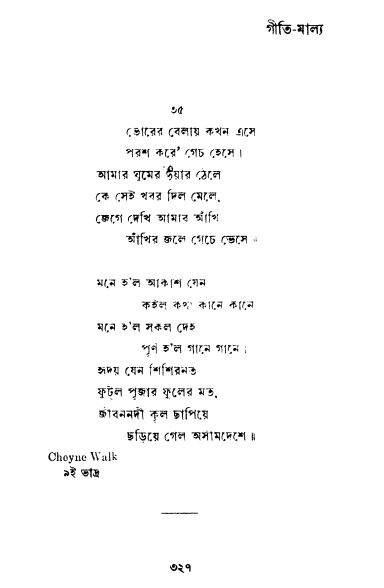 গীতি-মাল্য
৩৫
ভোরের বেলায় কখন এসে
পরশ করে' গেচ হেসে।
আমার ঘুমের দুয়ার ঠেলে
কে সেই খবর দিল মেলে,
জেগে দেখি আমার আঁখি
আঁখির জলে গেচে ভেসে॥
মনে হ'ল আকাশ যেন
কইল কথা কানে কানে
মনে হ'ল সকল দেহ
পূর্ণ হ'ল গানে গানে।
হৃদয় যেন শিশিরনত
ফুট্‌ল পূজার ফুলের মত,
জীবননদী কূল ছাপিয়ে
ছড়িয়ে গেল অসীমদেশে॥
Cheyne Walk
৯ই ভাদ্র
৩২৭